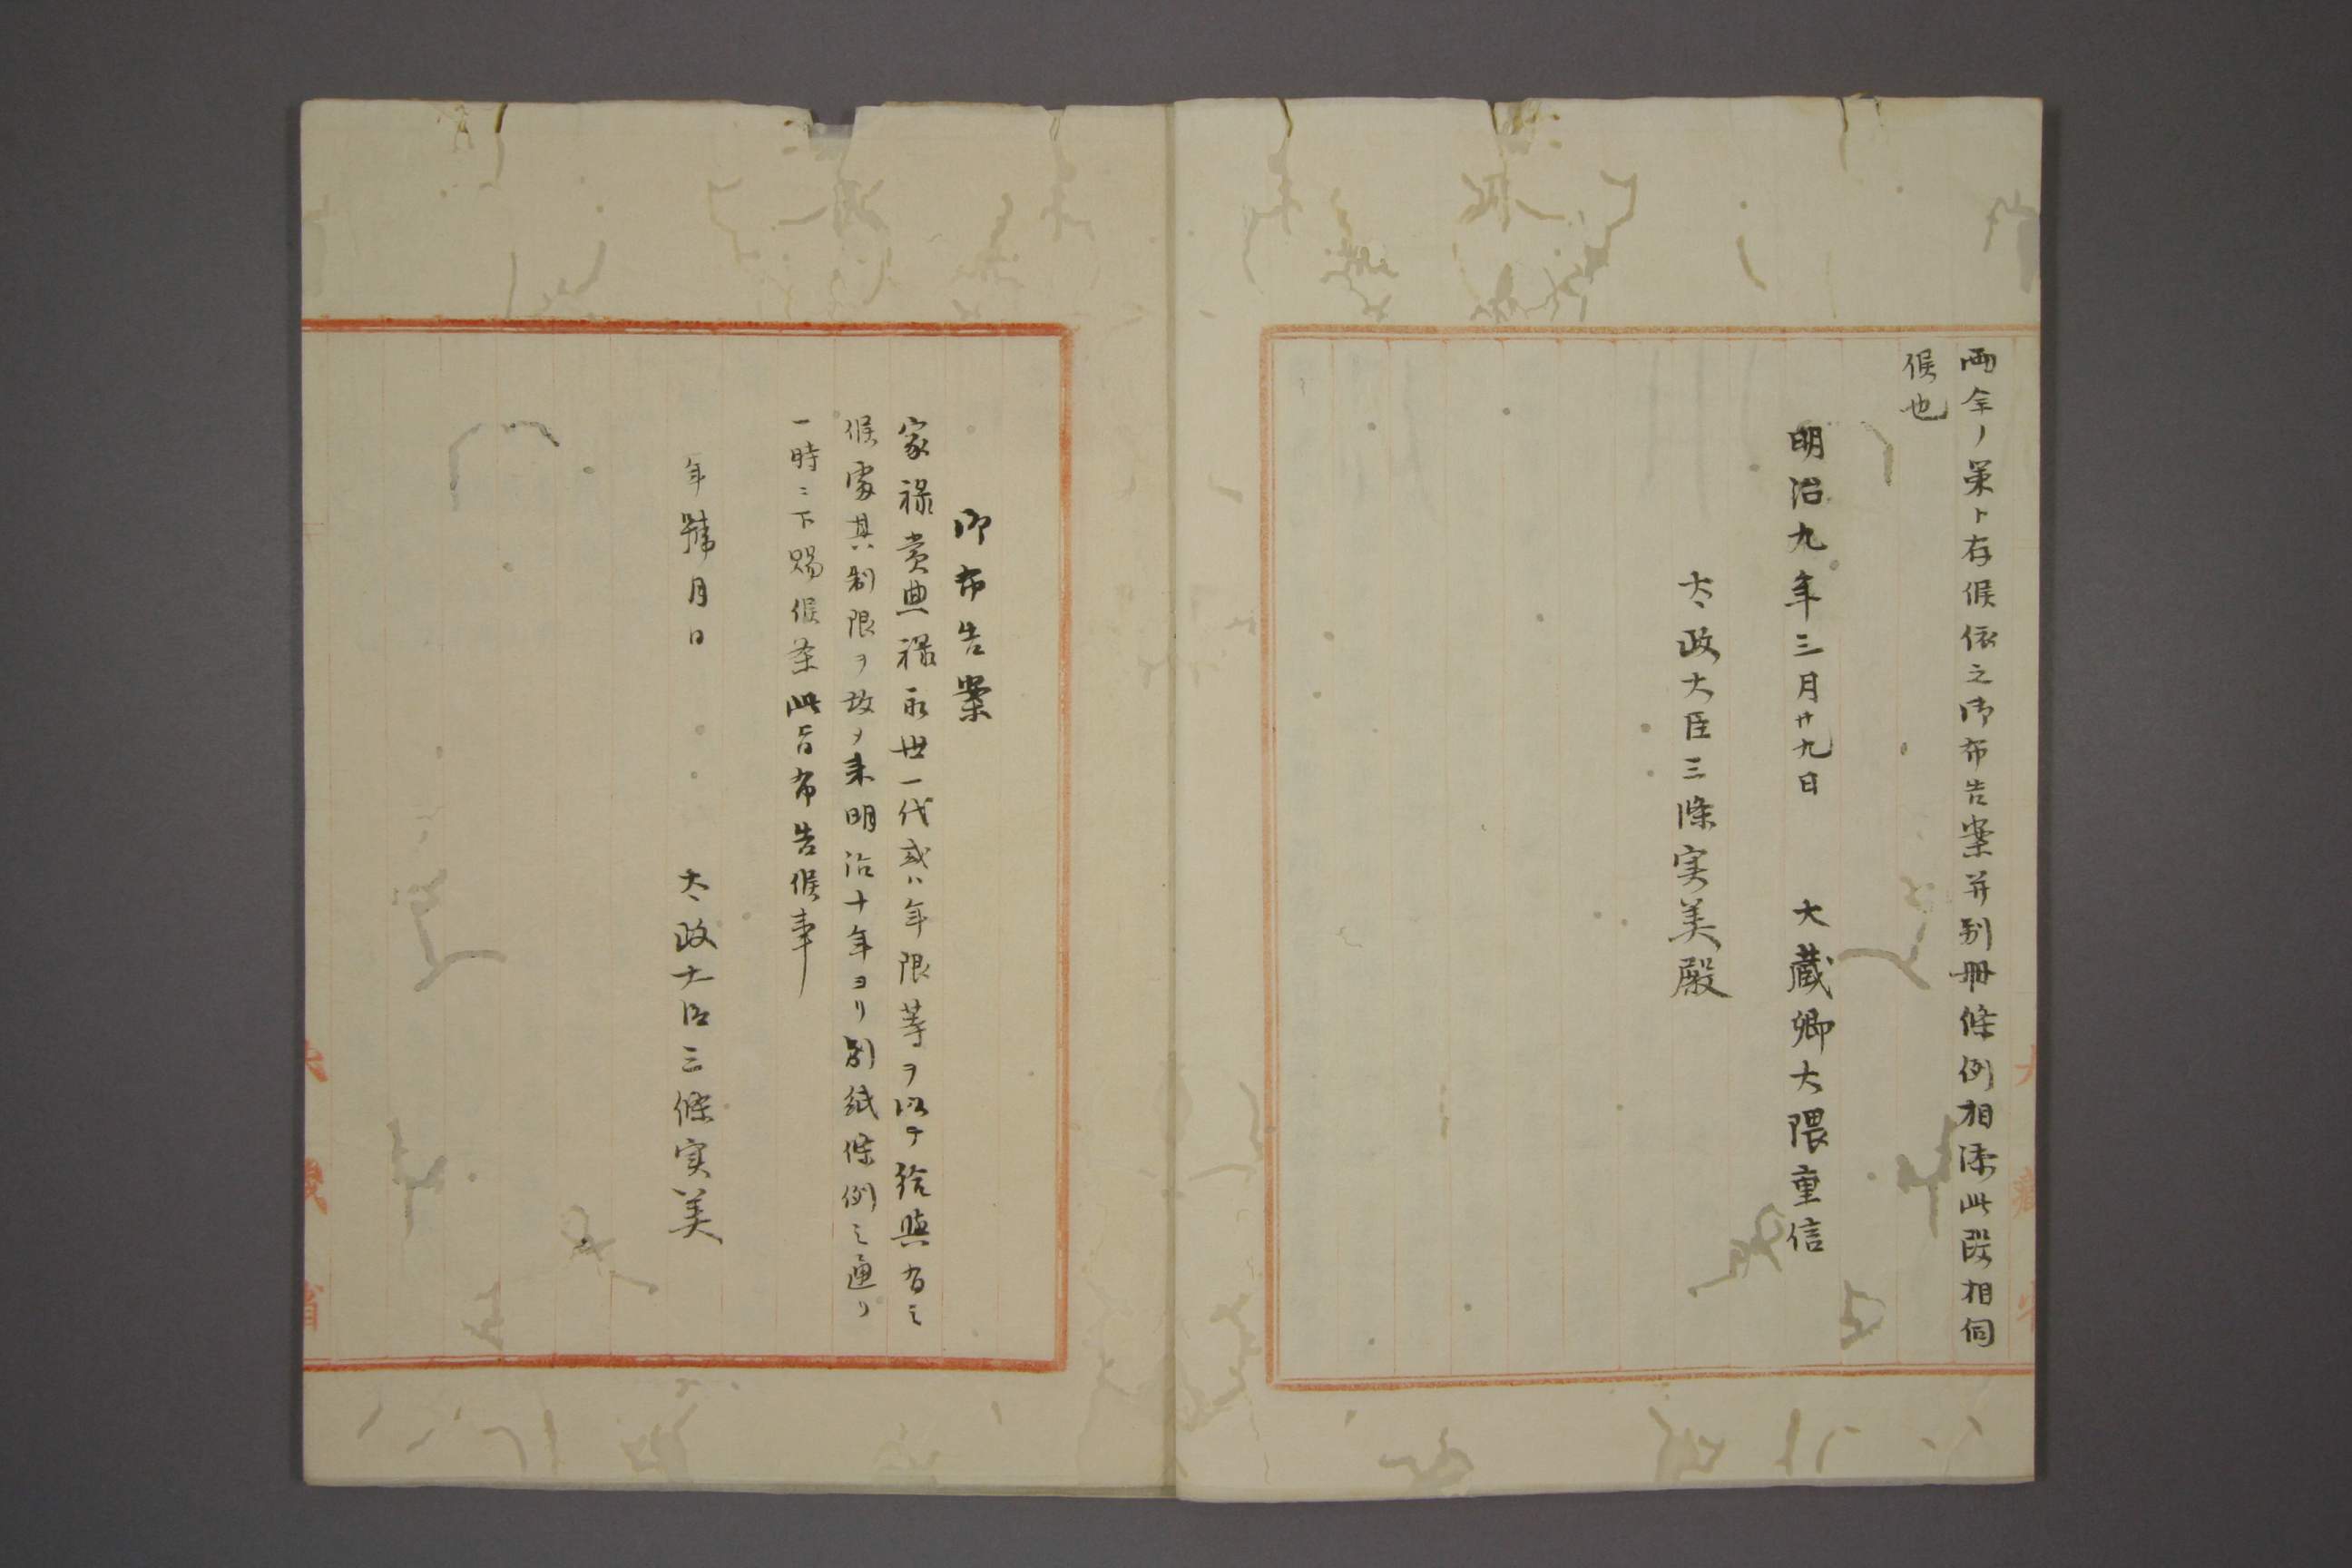 両全ノ策ト存候依之御布告案并別冊條例相添此段相伺
候也
明治九年三月廿九日　大蔵卿大隈重信
太政大臣三條実美殿
御布告案
家禄賞典禄永世一代或ハ年限等ヲ以テ給與有之
候處其制限ヲ改ヲ来明治十年ヨリ別紙條例之通リ
一時ニ下賜候条此旨布告候事
年號月日　太政大臣三條実美
大藏省